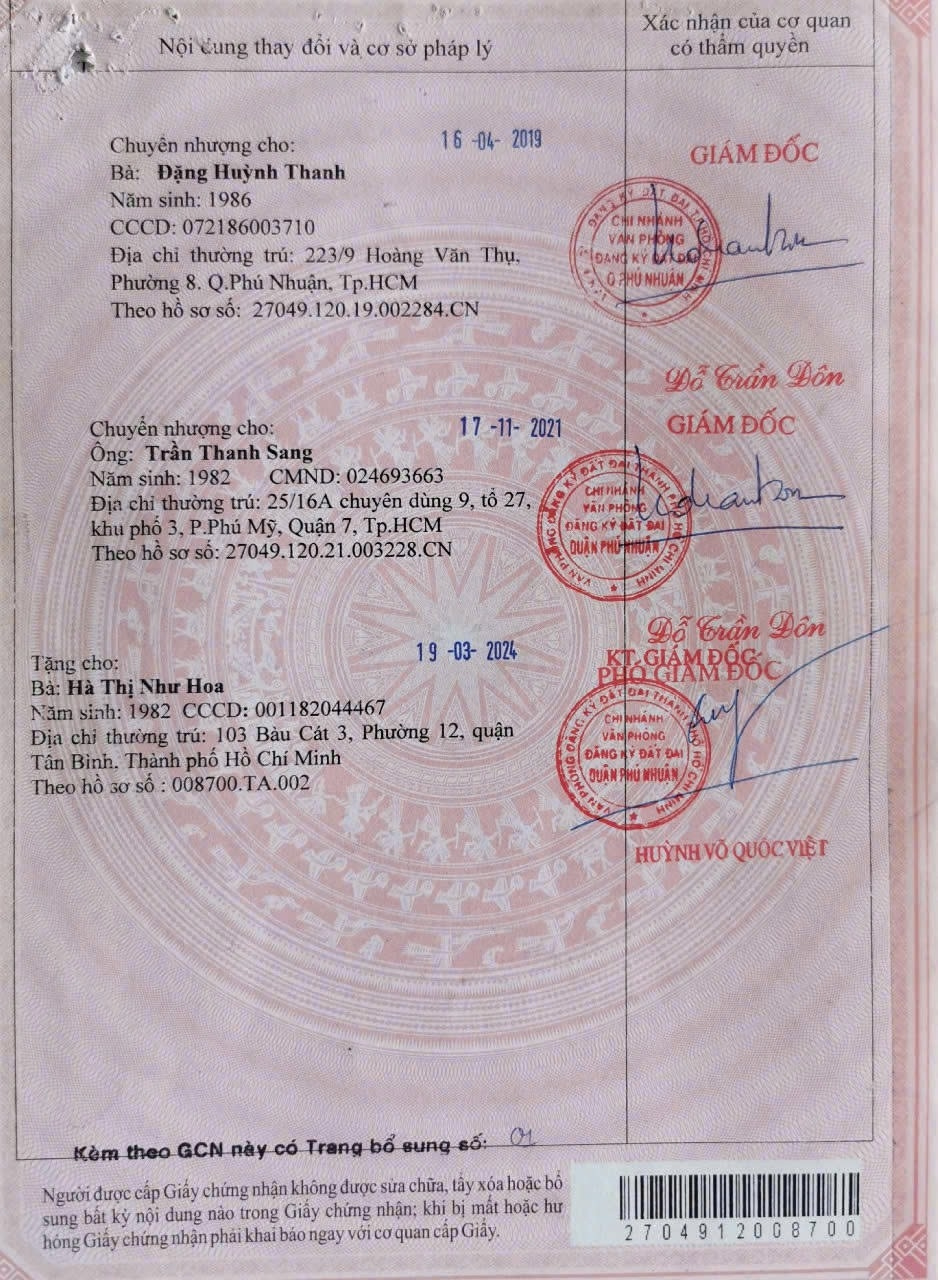 Nội dung thay đổi và cơ sở pháp lý
Xác nhận của cơ quan
có thẩm quyền
Chuyên nhượng cho:
16 -04- 2019
Bà: Đặng Huỳnh Thanh
Năm sinh: 1986
CCCD: 072186003710
Địa chỉ thường trú: 223/9 Hoàng Văn Thụ,
Phường 8. Q.Phú Nhuận, Tp.HCM
Theo hồ sơ số: 27049.120.19.002284.CN
GIÁM ĐỐC
CHI NHÁNH
VĂN PHÒNG
ĐĂNG KÝ ĐẤT ĐAI
Q PHÚ NHUẬN
Đỗ Trần Đôn
Chuyển nhượng cho:
17 -11- 2021
Ông: Trần Thanh Sang
Năm sinh: 1982 CMND: 024693663
Địa chỉ thường trú: 25/16A chuyên dùng 9, tổ 27,
khu phố 3, P.Phú Mỹ, Quận 7, Tp.HCM
Theo hồ sơ số: 27049.120.21.003228.CN
GIÁM ĐỐC
VĂN PHÒNG ĐĂNG KÝ ĐẤT ĐAI THÀNH PHỐ HỒ CHÍ MINH
CHI NHÁNH
VĂN PHÒNG
ĐĂNG KÝ ĐẤT ĐAI
QUẬN PHÚ NHUẬN
Đỗ Trần Đôn
Tặng cho:
19 -03- 2024
Bà: Hà Thị Như Hoa
Năm sinh: 1982 CCCD: 001182044467
Địa chỉ thường trú: 103 Bàu Cát 3, Phường 12, quận
Tân Bình. Thành phố Hồ Chí Minh
Theo hồ sơ số : 008700.TA.002
KT. GIÁM ĐỐC
PHÓ GIÁM ĐỐC
VĂN PHÒNG ĐĂNG KÝ ĐẤT ĐAI THÀNH PHỐ HỒ CHÍ MINH
CHI NHÁNH
VĂN PHÒNG
ĐĂNG KÝ ĐẤT ĐAI
QUẬN PHÚ NHUẬN
HUỲNH VÕ QUỐC VIỆT
Kèm theo GCN này có Trang bổ sung số: 01
Người được cấp Giấy chứng nhận không được sửa chữa, tẩy xóa hoặc bổ
sung bất kỳ nội dung nào trong Giấy chứng nhận; khi bị mất hoặc hư
hỏng Giấy chứng nhận phải khai báo ngay với cơ quan cấp Giấy.
2704912008700